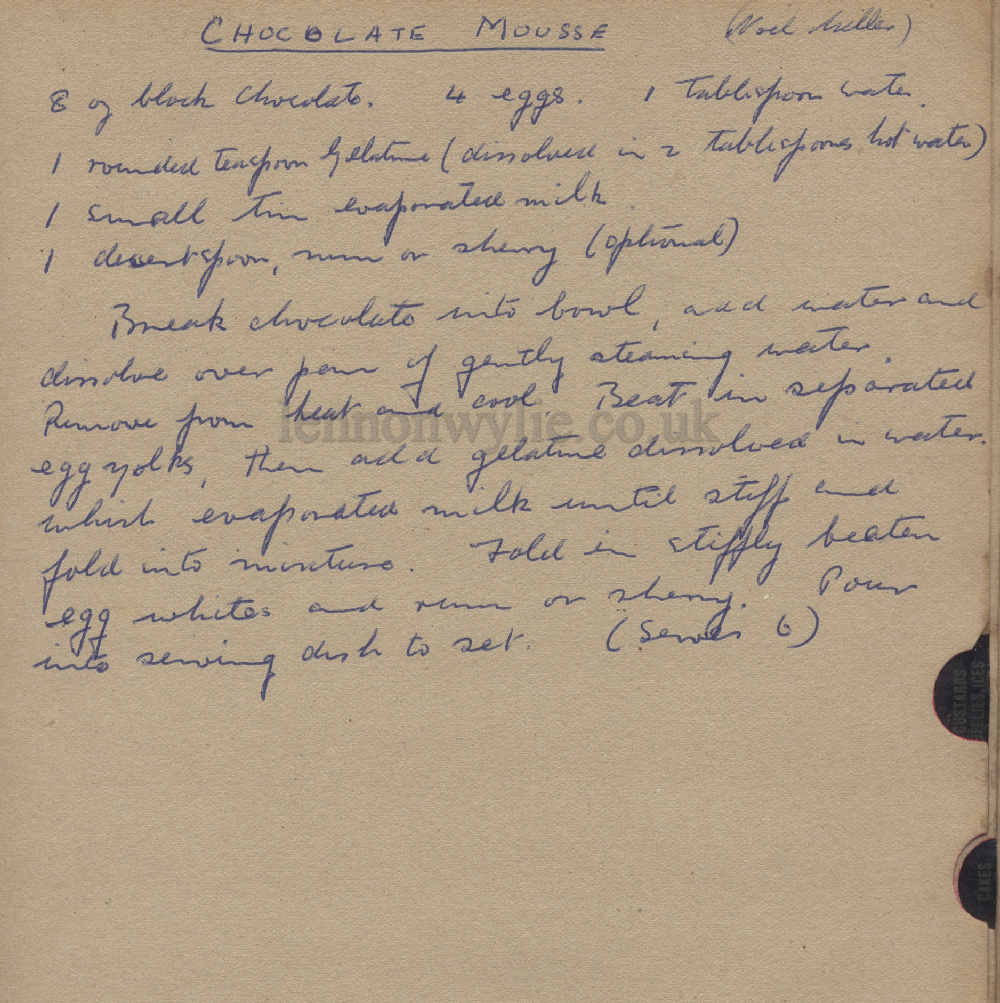 CHOCOLATE MOUSSE (Noel Miller)
8 oz block chocolate. 4 eggs. 1 tablespoon water.
1 rounded teaspoon gelatine (dissolved in 2 tablespoons hot water)
1 small tin evaporated milk.
1 desertspoon, rum or sherry (optional)
Break chocolate into bowl, add water and
dissolve over pan of gently steaming water.
Remove from heat and cool. Beat in separated
lennonwylie.co.uk
egg yolks, then add gelatine dissolved in water.
whisk evaporated milk until stiff and
fold into mixture. Fold in stiffly beaten
egg whites and rum or sherry. Pour
into serving dish to set. (Serves 6)
CUSTARDS
JELLIES, ICES
CAKES